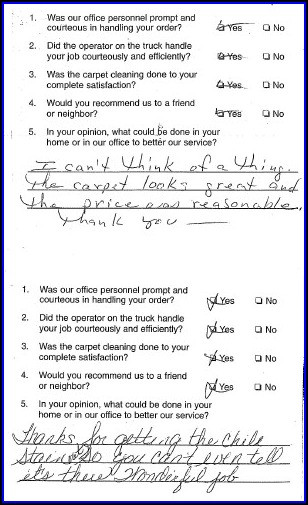 1. Was our office personnel prompt and
courteous in handling your order? Yes No
2. Did the operator on the truck handle
your job courteously and efficiently? Yes No
3. Was the carpet cleaning done to your
complete satisfaction? Yes No
4. Would you recommend us to a friend
or neighbor? Yes No
5. In your opinion, what could be done in your
home or in our office to better our service?
I can't think of a thing.
The carpet looks great and
the price was reasonable.
Thank you —
1. Was our office personnel prompt and
courteous in handling your order? Yes No
2. Did the operator on the truck handle
your job courteously and efficiently? Yes No
3. Was the carpet cleaning done to your
complete satisfaction? Yes No
4. Would you recommend us to a friend
or neighbor? Yes No
5. In your opinion, what could be done in your
home or in our office to better our service?
Thanks for getting the Chile
Stain So you can't even tell
it's there! Wonderful job